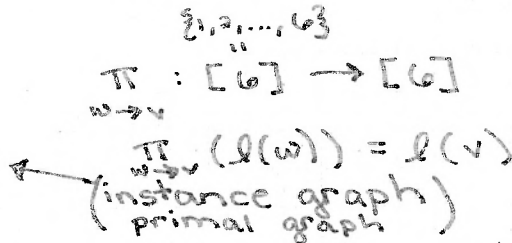 {1,2,...,6}
"
π : [6] → [6]
w→v
π (l(w)) = l(v)
w→v
(instance graph
primal graph)